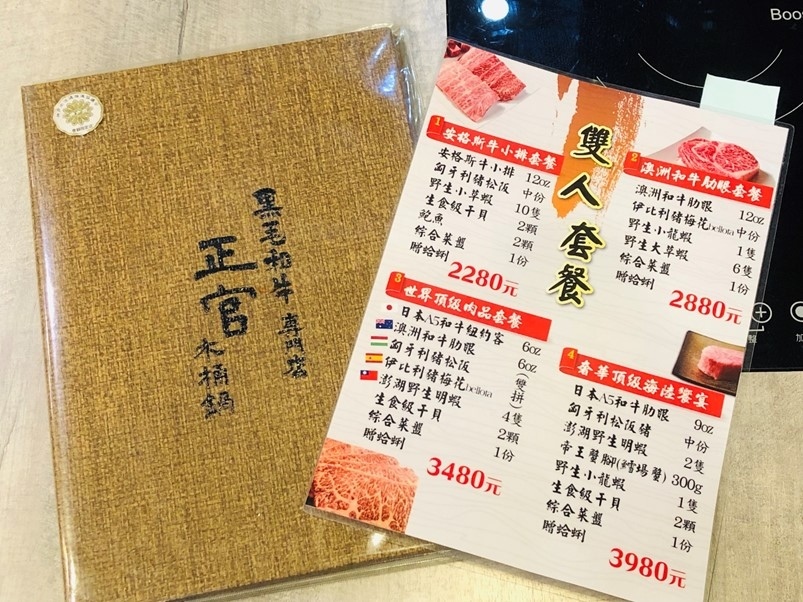 黑毛和牛專門店
正官
木桶鍋
Boo
雙人套餐
1 安格斯牛小排套餐
安格斯牛小排 12oz
匈牙利豬松阪 中份
野生小草蝦 10隻
生食級干貝 2顆
鮑魚 2顆
綜合菜盤 1份
贈蛤蜊
2280元
2 澳洲和牛肋眼套餐
澳洲和牛肋眼 12oz
伊比利豬梅花bellota 中份
野生小龍蝦 1隻
野生大草蝦 6隻
綜合菜盤 1份
贈蛤蜊
2880元
3 世界頂級肉品套餐
日本A5和牛紐約客 6oz
澳洲和牛肋眼 6oz
匈牙利豬松阪 (雙拼)
伊比利豬梅花bellota
澎湖野生明蝦 4隻
生食級干貝 2顆
綜合菜盤 1份
贈蛤蜊
3480元
4 奢華頂級海陸饗宴
日本A5和牛肋眼 9oz
匈牙利松阪豬 中份
澎湖野生明蝦 2隻
帝王蟹腳(鱈場蟹) 300g
野生小龍蝦 1隻
生食級干貝 2顆
綜合菜盤 1份
贈蛤蜊
3980元